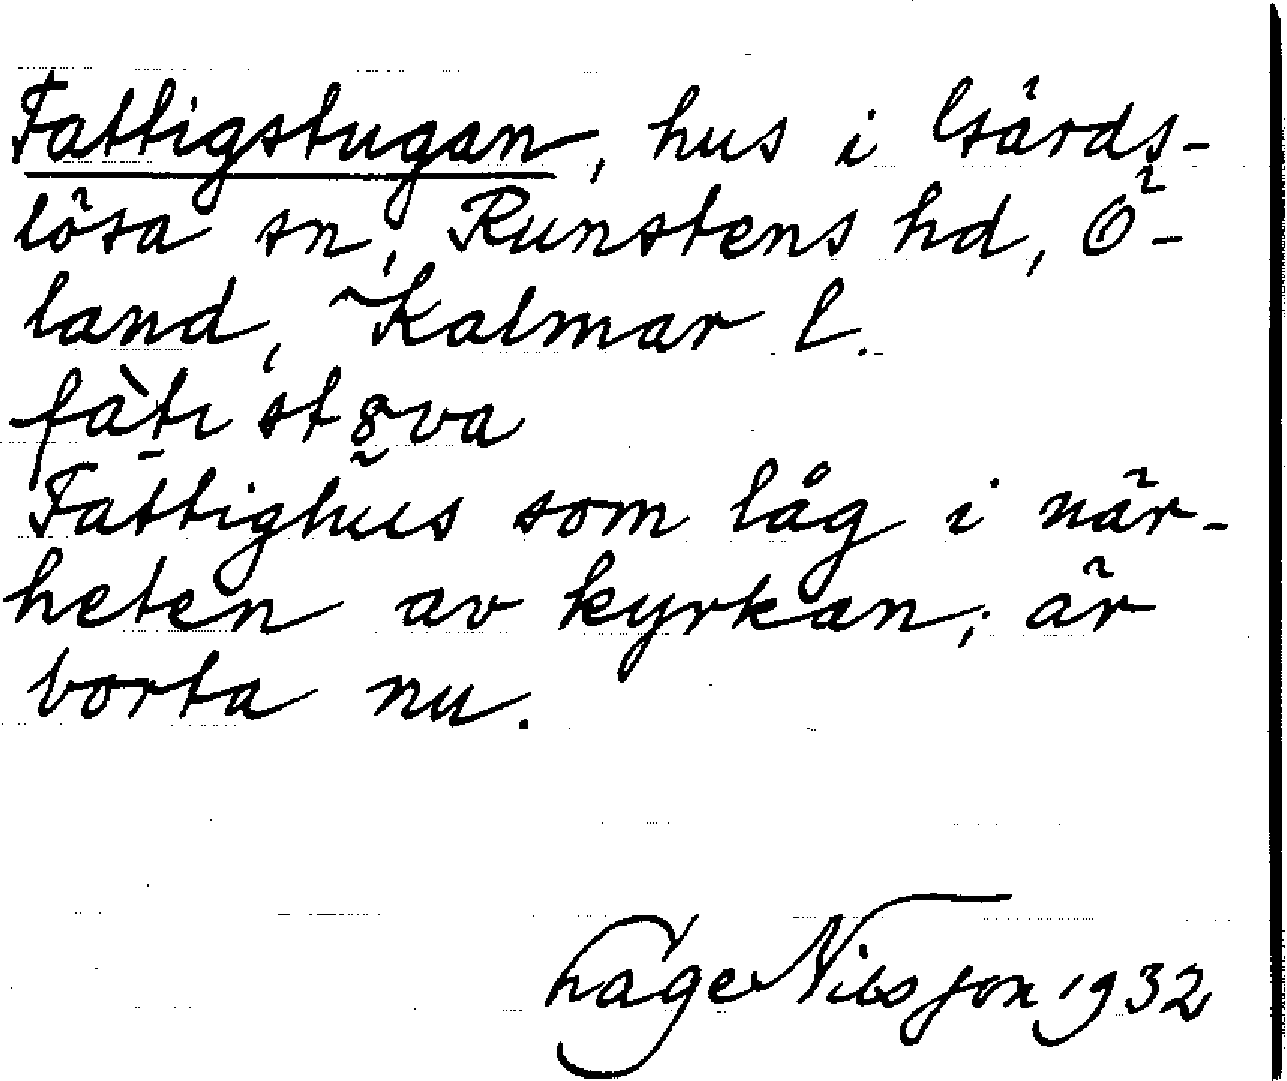 Fattigstugan, hus i Gärds-
lösa sn, Runstens hd, Ö-
land, Kalmar l.
fàtı st8va
Fattighus som låg i när-
heten av kyrkan; är
borta nu.
Åge Nilsson 1932